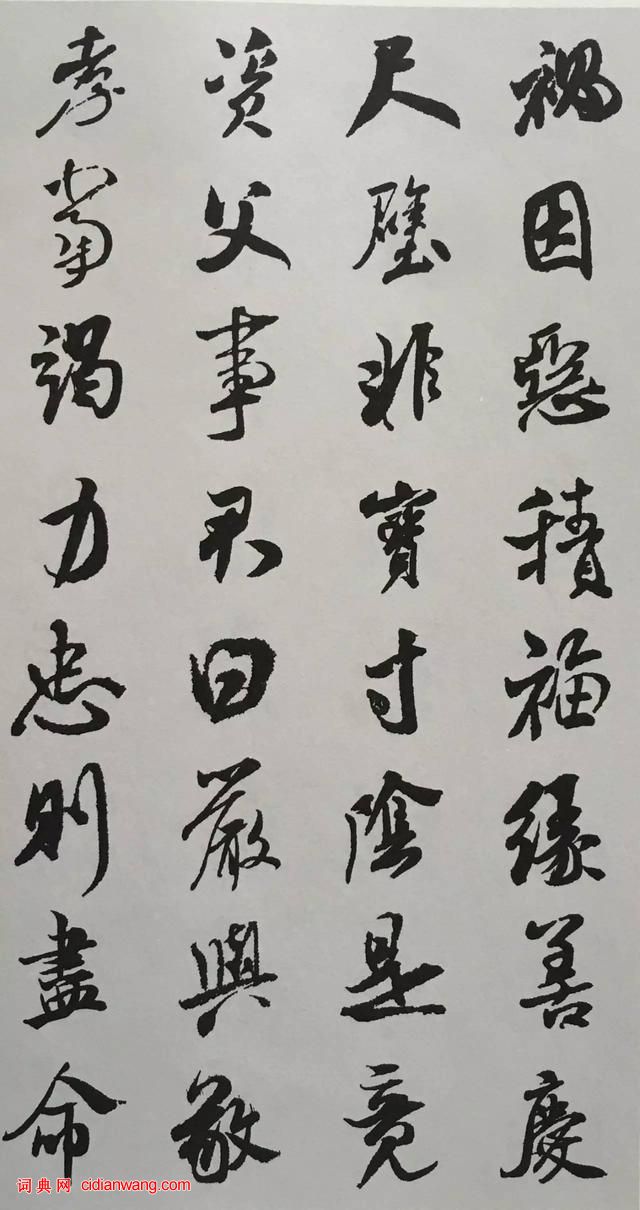 禍因惡積福緣善慶
尺璧非寶寸陰是竟
資父事君曰嚴與敬
孝當竭力忠則盡命
词典网 cidianwang.com